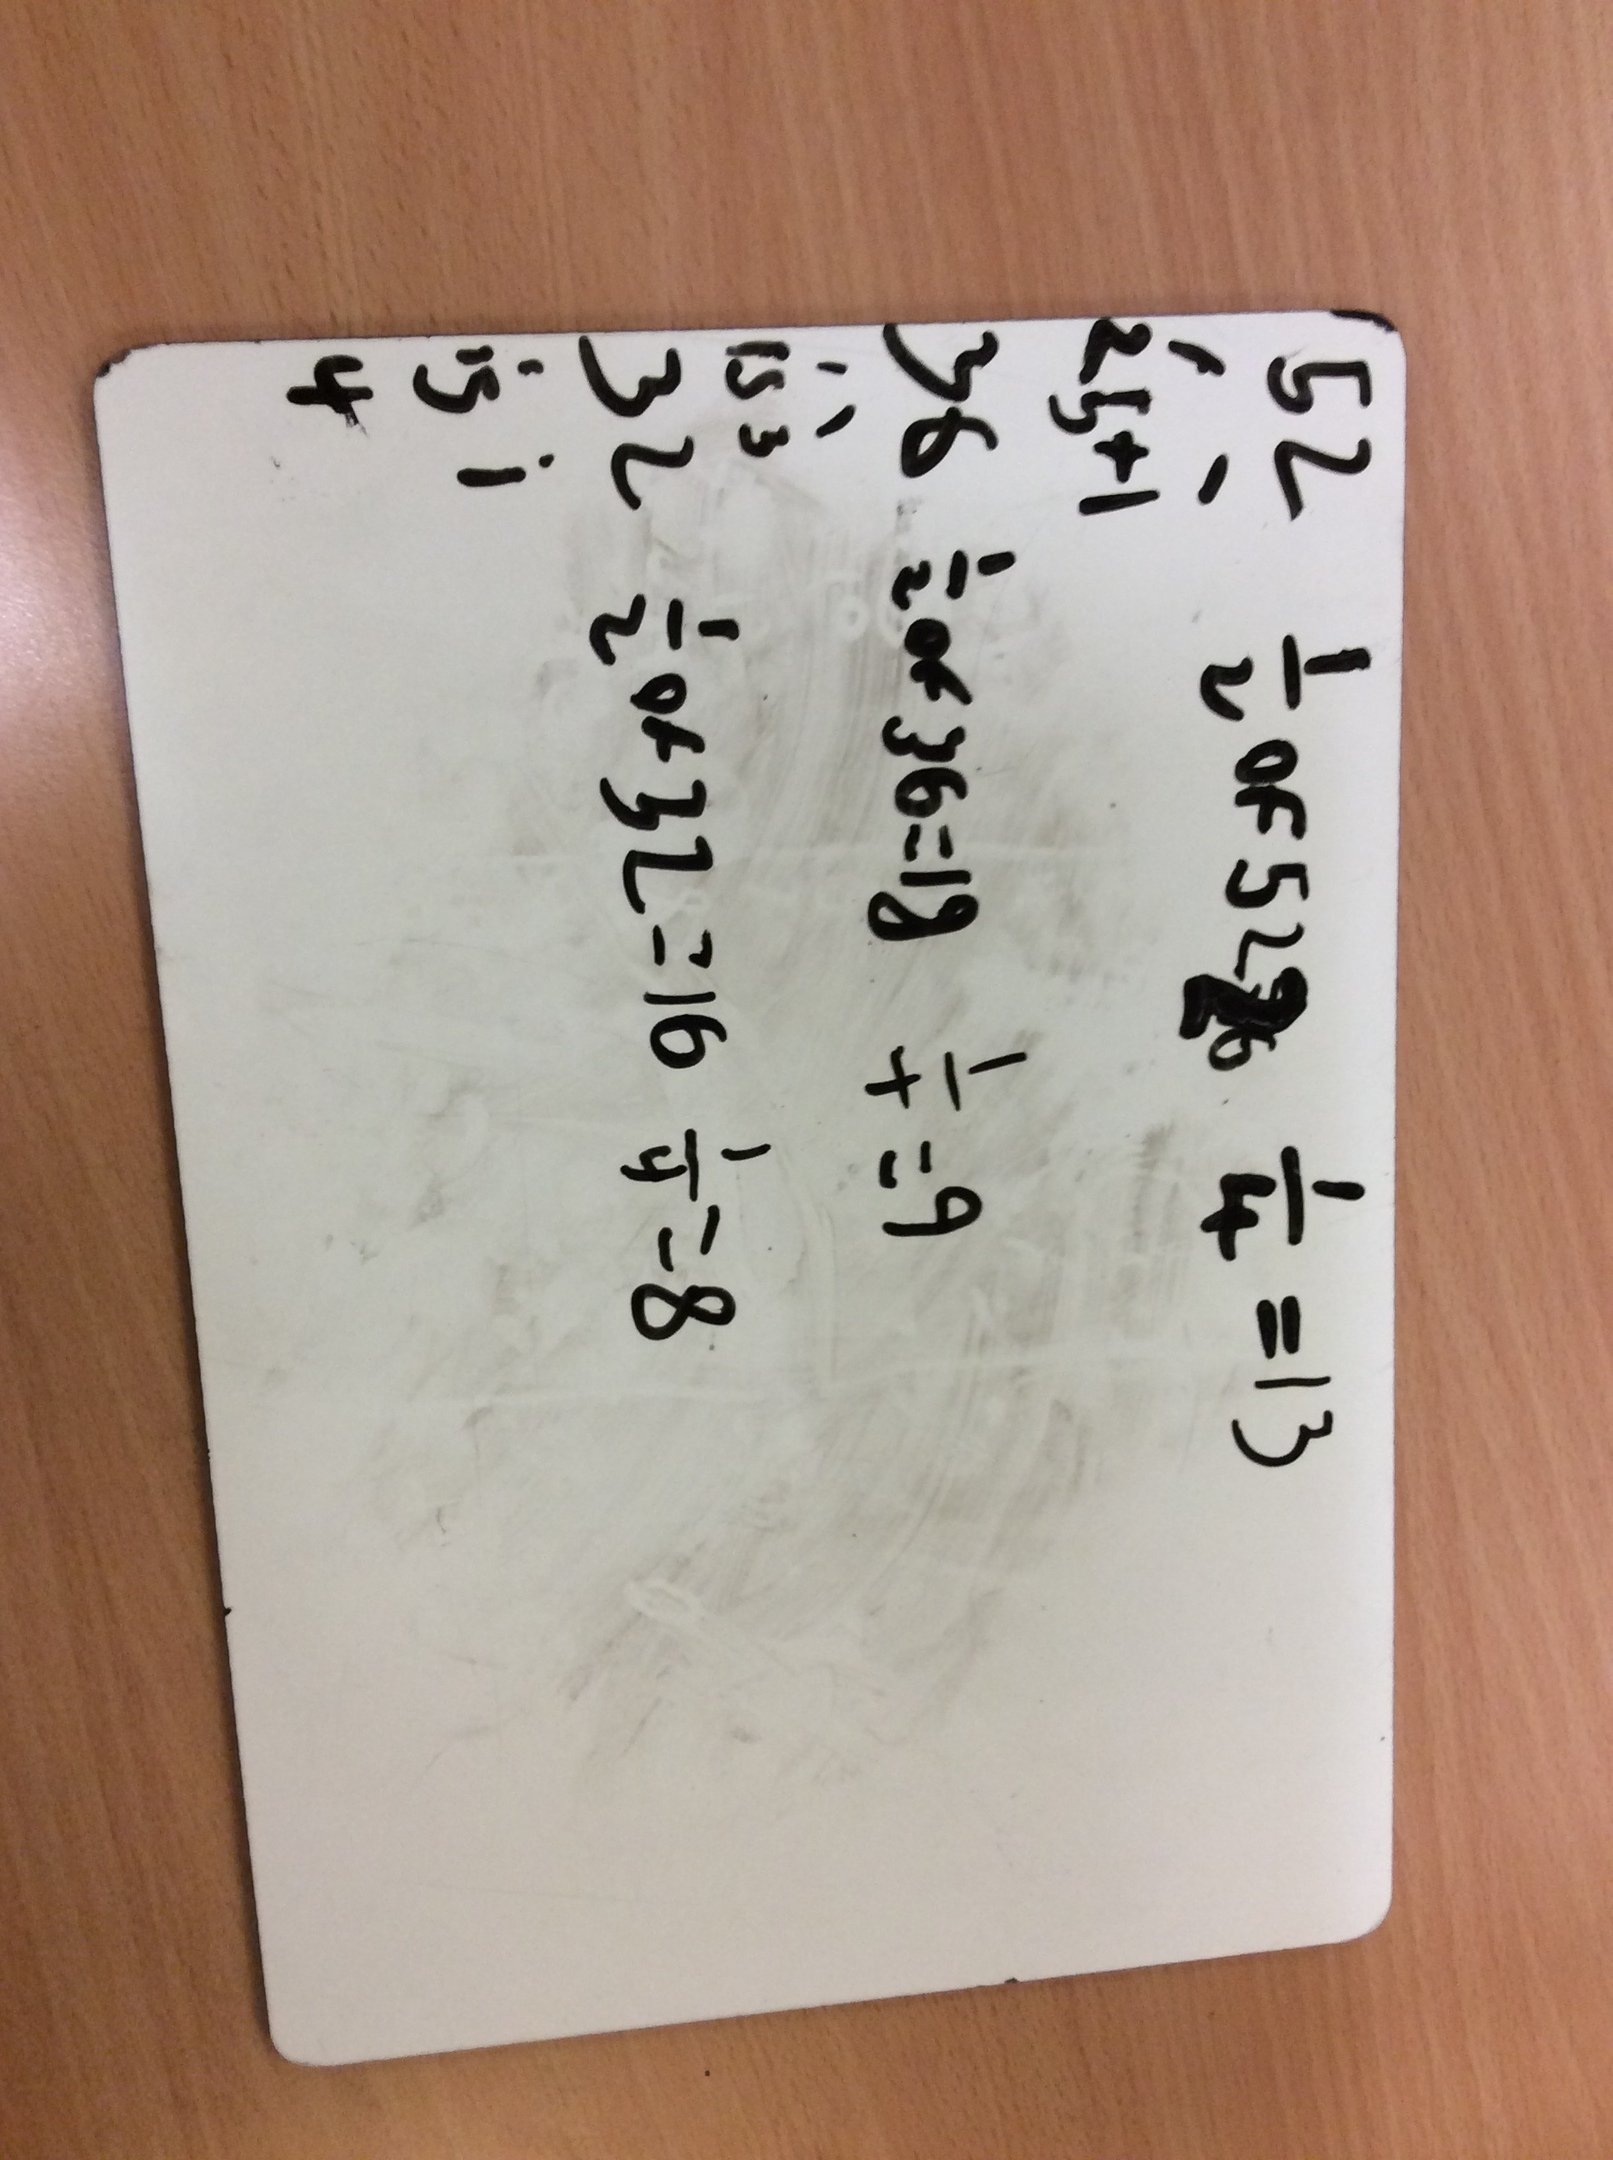 52 1/2 of 52=26 1/4 =13
25+1
36 1/2 of 36=18 1/4 =9
15 3
32 1/2 of 32=16 1/4=8
15 1
4